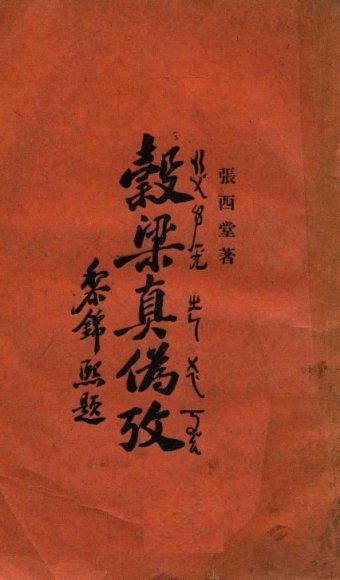 張西堂著
穀梁真偽攷
黎錦熙題